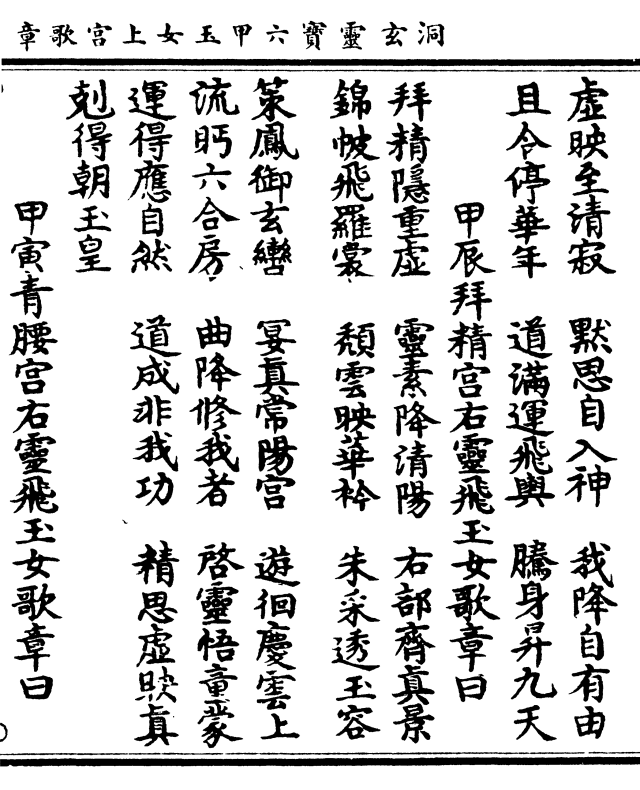 洞玄靈寶六甲玉女上宮歌章
虛映至清寂 默思自入神 我降自有由
且令停華年 道滿運飛輿 騰身昇九天
甲辰拜精宮右靈飛玉女歌章曰
拜精隱重虛 靈素降清陽 右部齊真景
錦帔飛羅裳 頹雲映華衿 朱采透玉容
策鳳御玄轡 宴真常陽宮 遊徊慶雲上
流眄六合房 曲降修我者 啓靈悟童蒙
運得應自然 道成非我功 精思虛映真
剋得朝玉皇
甲寅青腰宮右靈飛玉女歌章曰